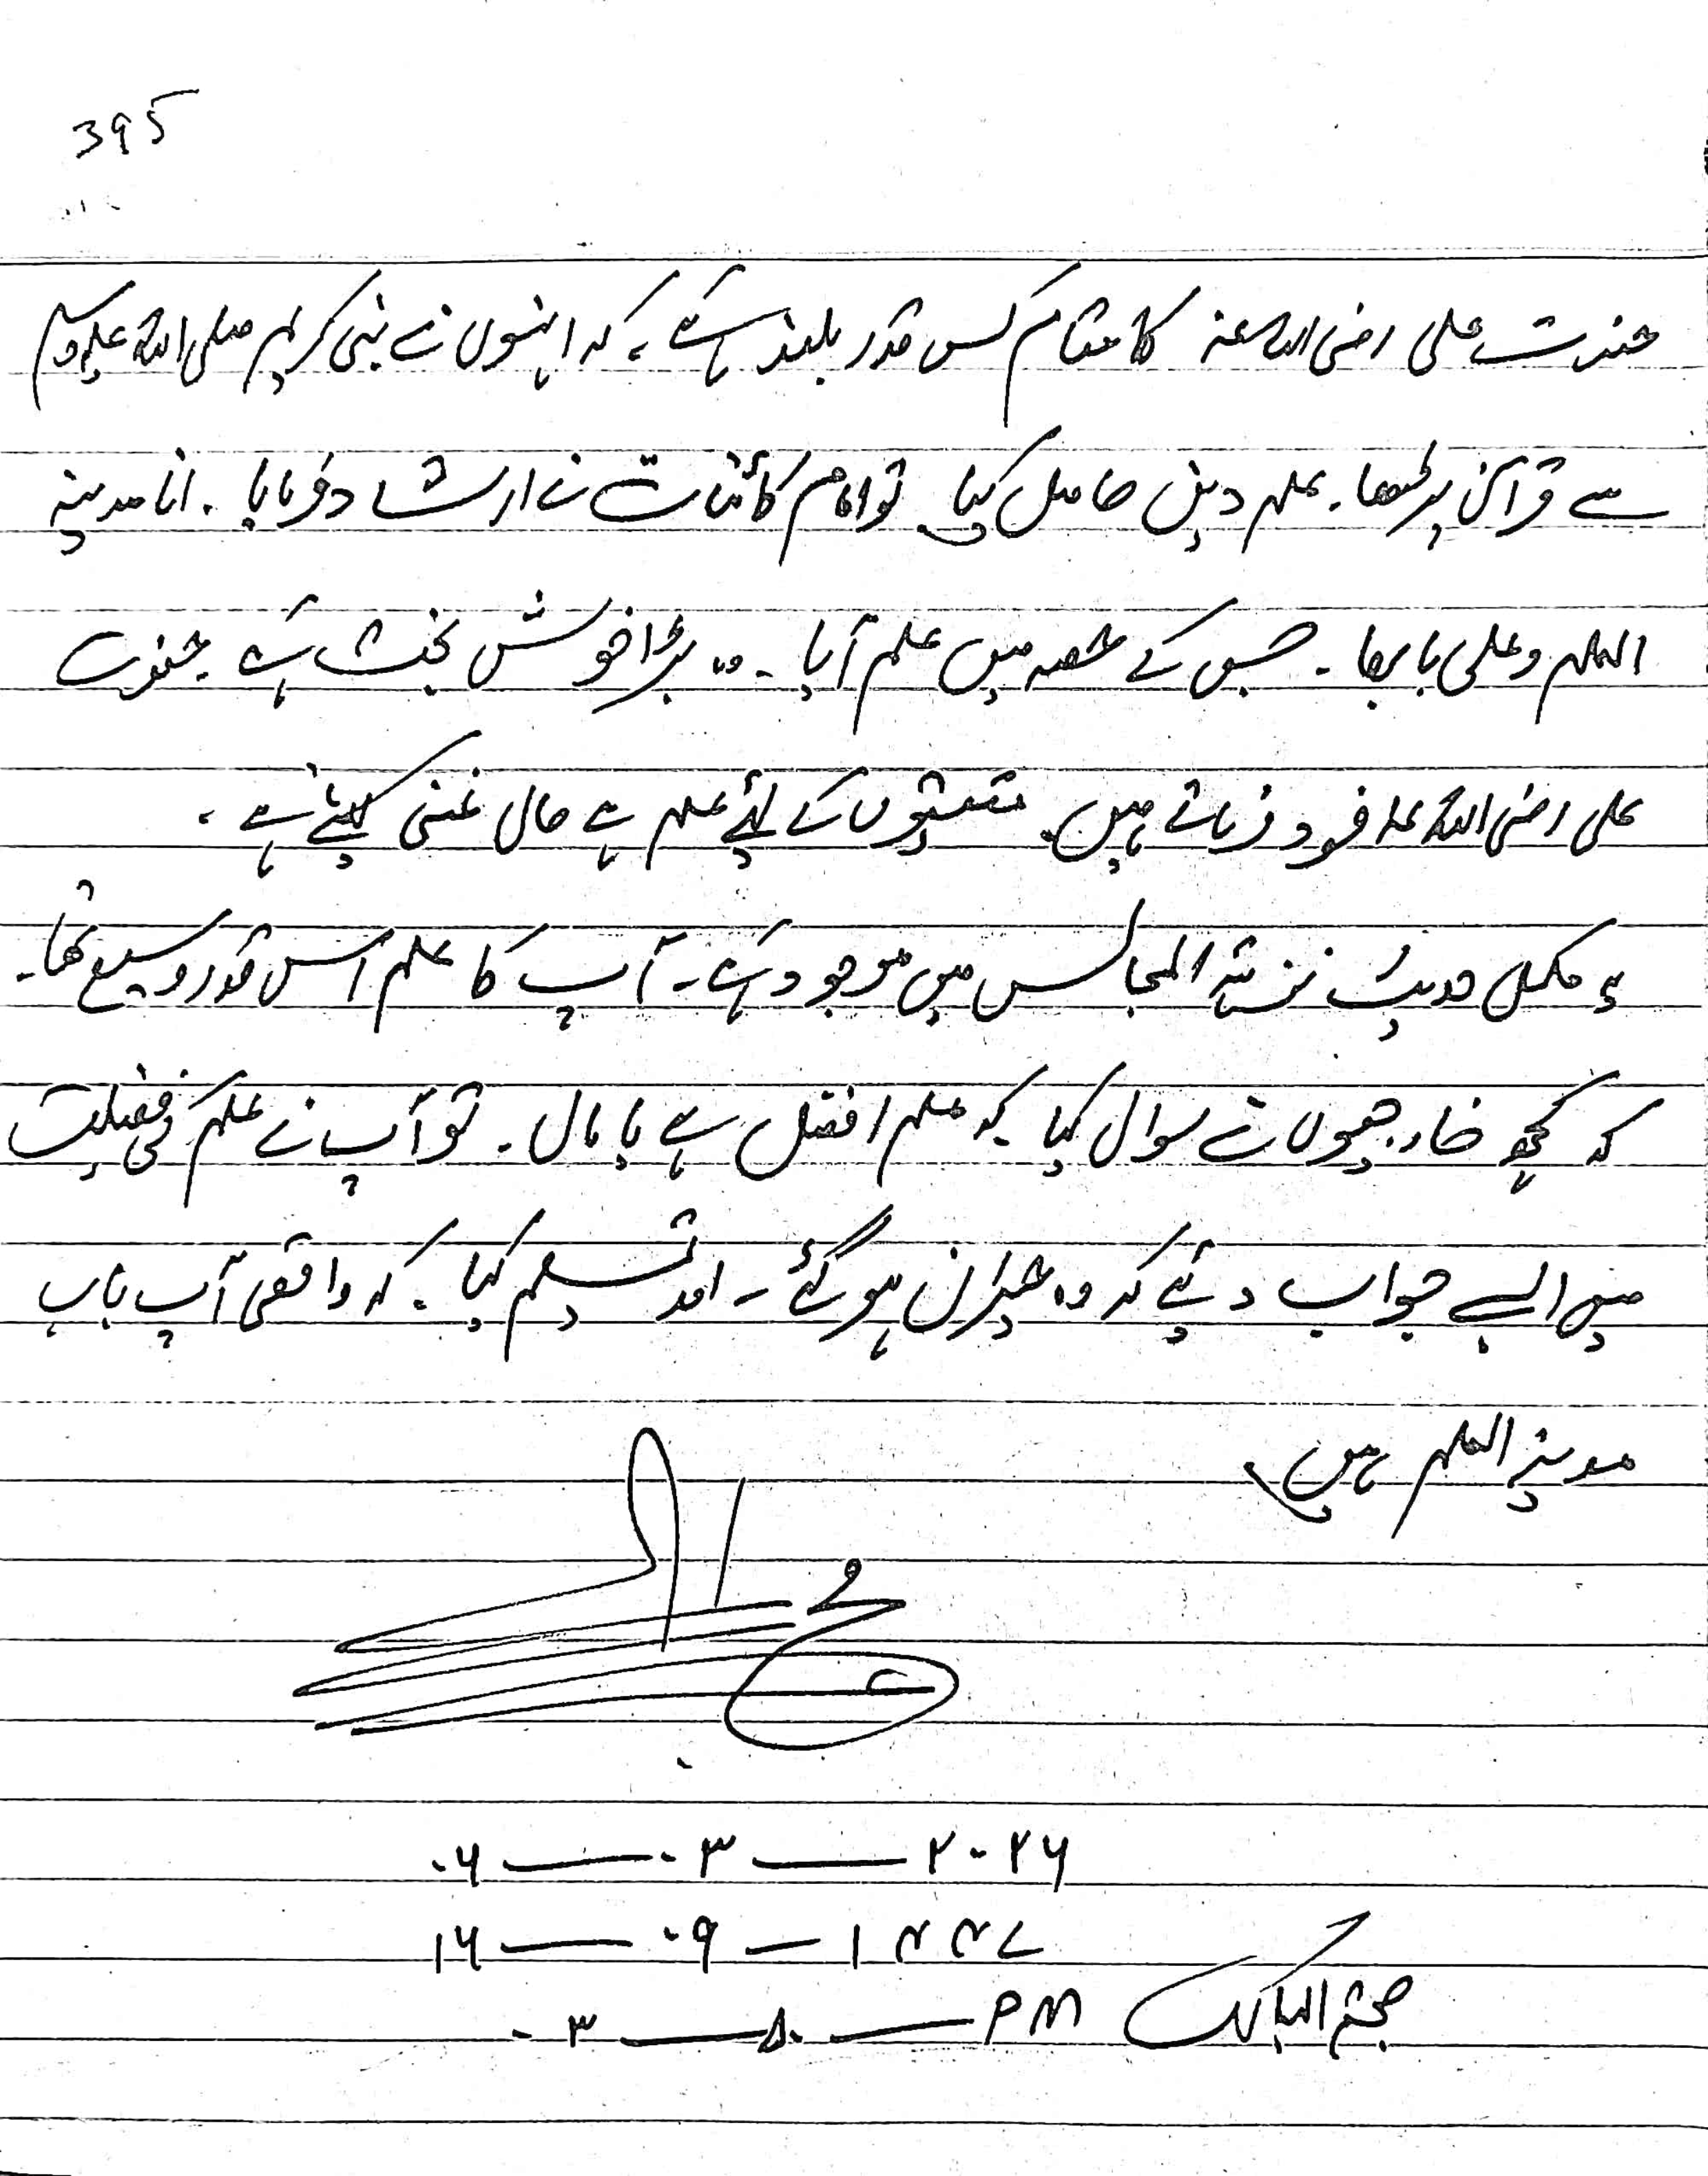 395
حضرت علی رضی اللہ عنہ کا مقام کس قدر بلند ہے، کہ انہوں نے نبی کریم صلی اللہ علیہ وسلم
سے قرآن پڑھا۔ علم دین حاصل کیا۔ تو امام کائنات نے ارشاد فرمایا۔ انا مدینۃ
العلم وعلی بابھا۔ جس کے حصہ میں علم آیا۔ وہ بڑا خوش بخت ہے۔ حضرت
علی رضی اللہ عنہ خود فرماتے ہیں۔ کے لئے علم ہے مال غنی کیلئے ہے۔
یہ مکمل حدیث نزہتہ المجالس میں موجود ہے۔ آپ کا علم اس قدر وسیع تھا۔
کہ کچھ خارجیوں نے سوال کیا کہ علم افضل ہے یا مال۔ تو آپ نے علم کی فضیلت
میں ایسے جواب دئیے کہ وہ حیران ہو گئے۔ اور تسلیم کیا۔ کہ واقعی آپ باب
مدینۃ العلم ہیں۔
۰۶ — ۰۳ — ۲۰۲۶
۱۶ — ۰۹ — ۱۴۴۷
جمعۃ المبارک PM — ۵۰ — ۰۳